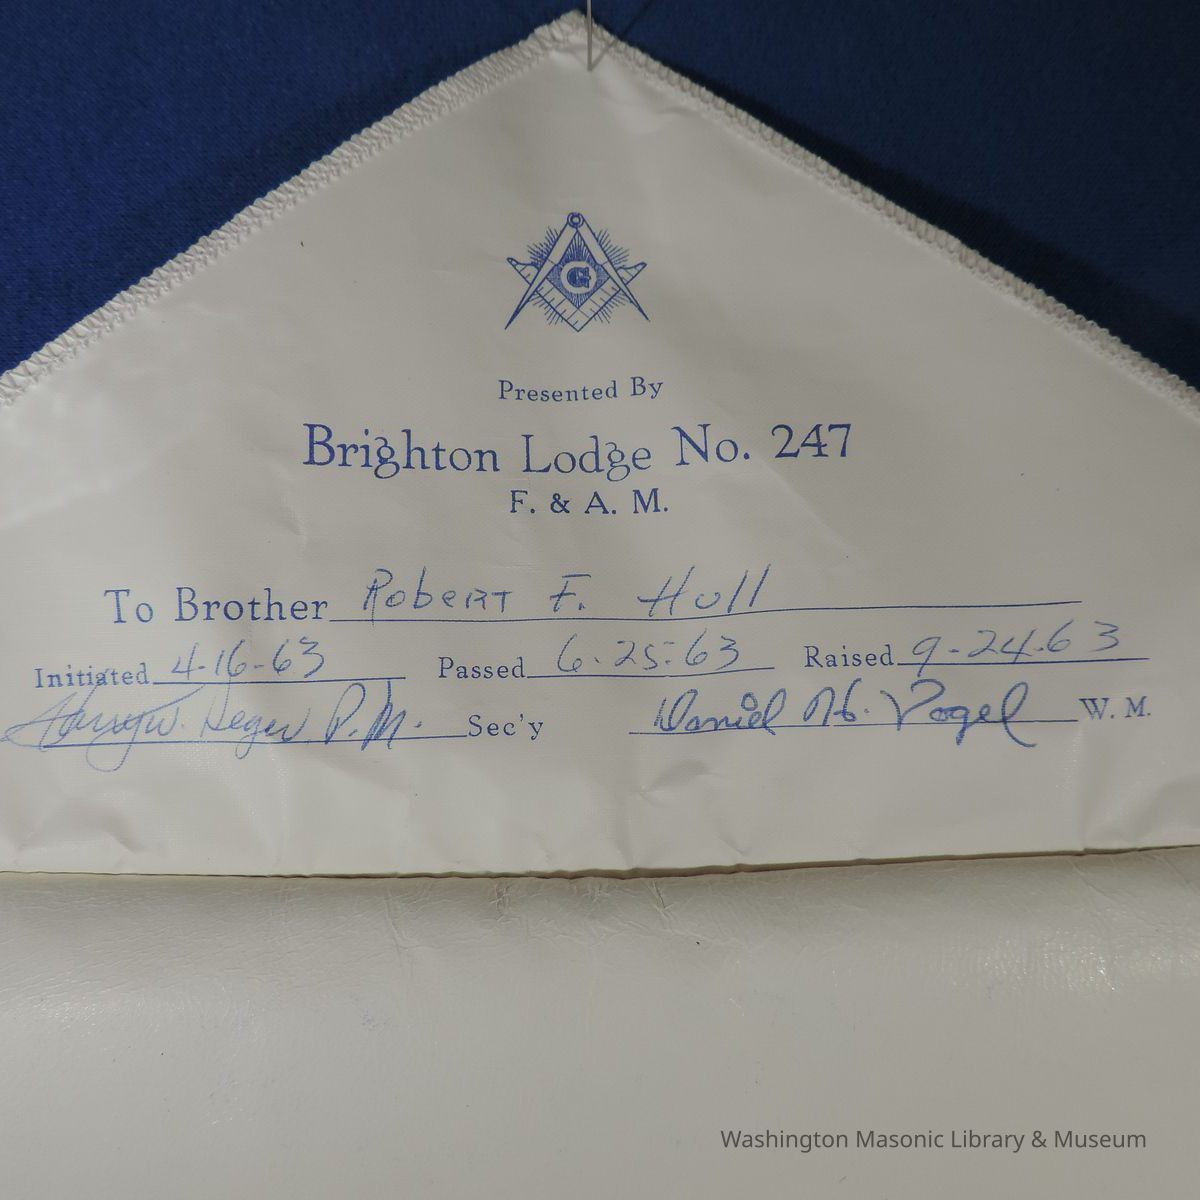 G
Presented By
Brighton Lodge No. 247
F. & A. M.
To Brother Robert F. Hull
Initiated 4-16-63 Passed 6-25-63 Raised 9-24-63
Harry W. P.M. Sec'y Daniel H. Vogel W. M.
Washington Masonic Library & Museum